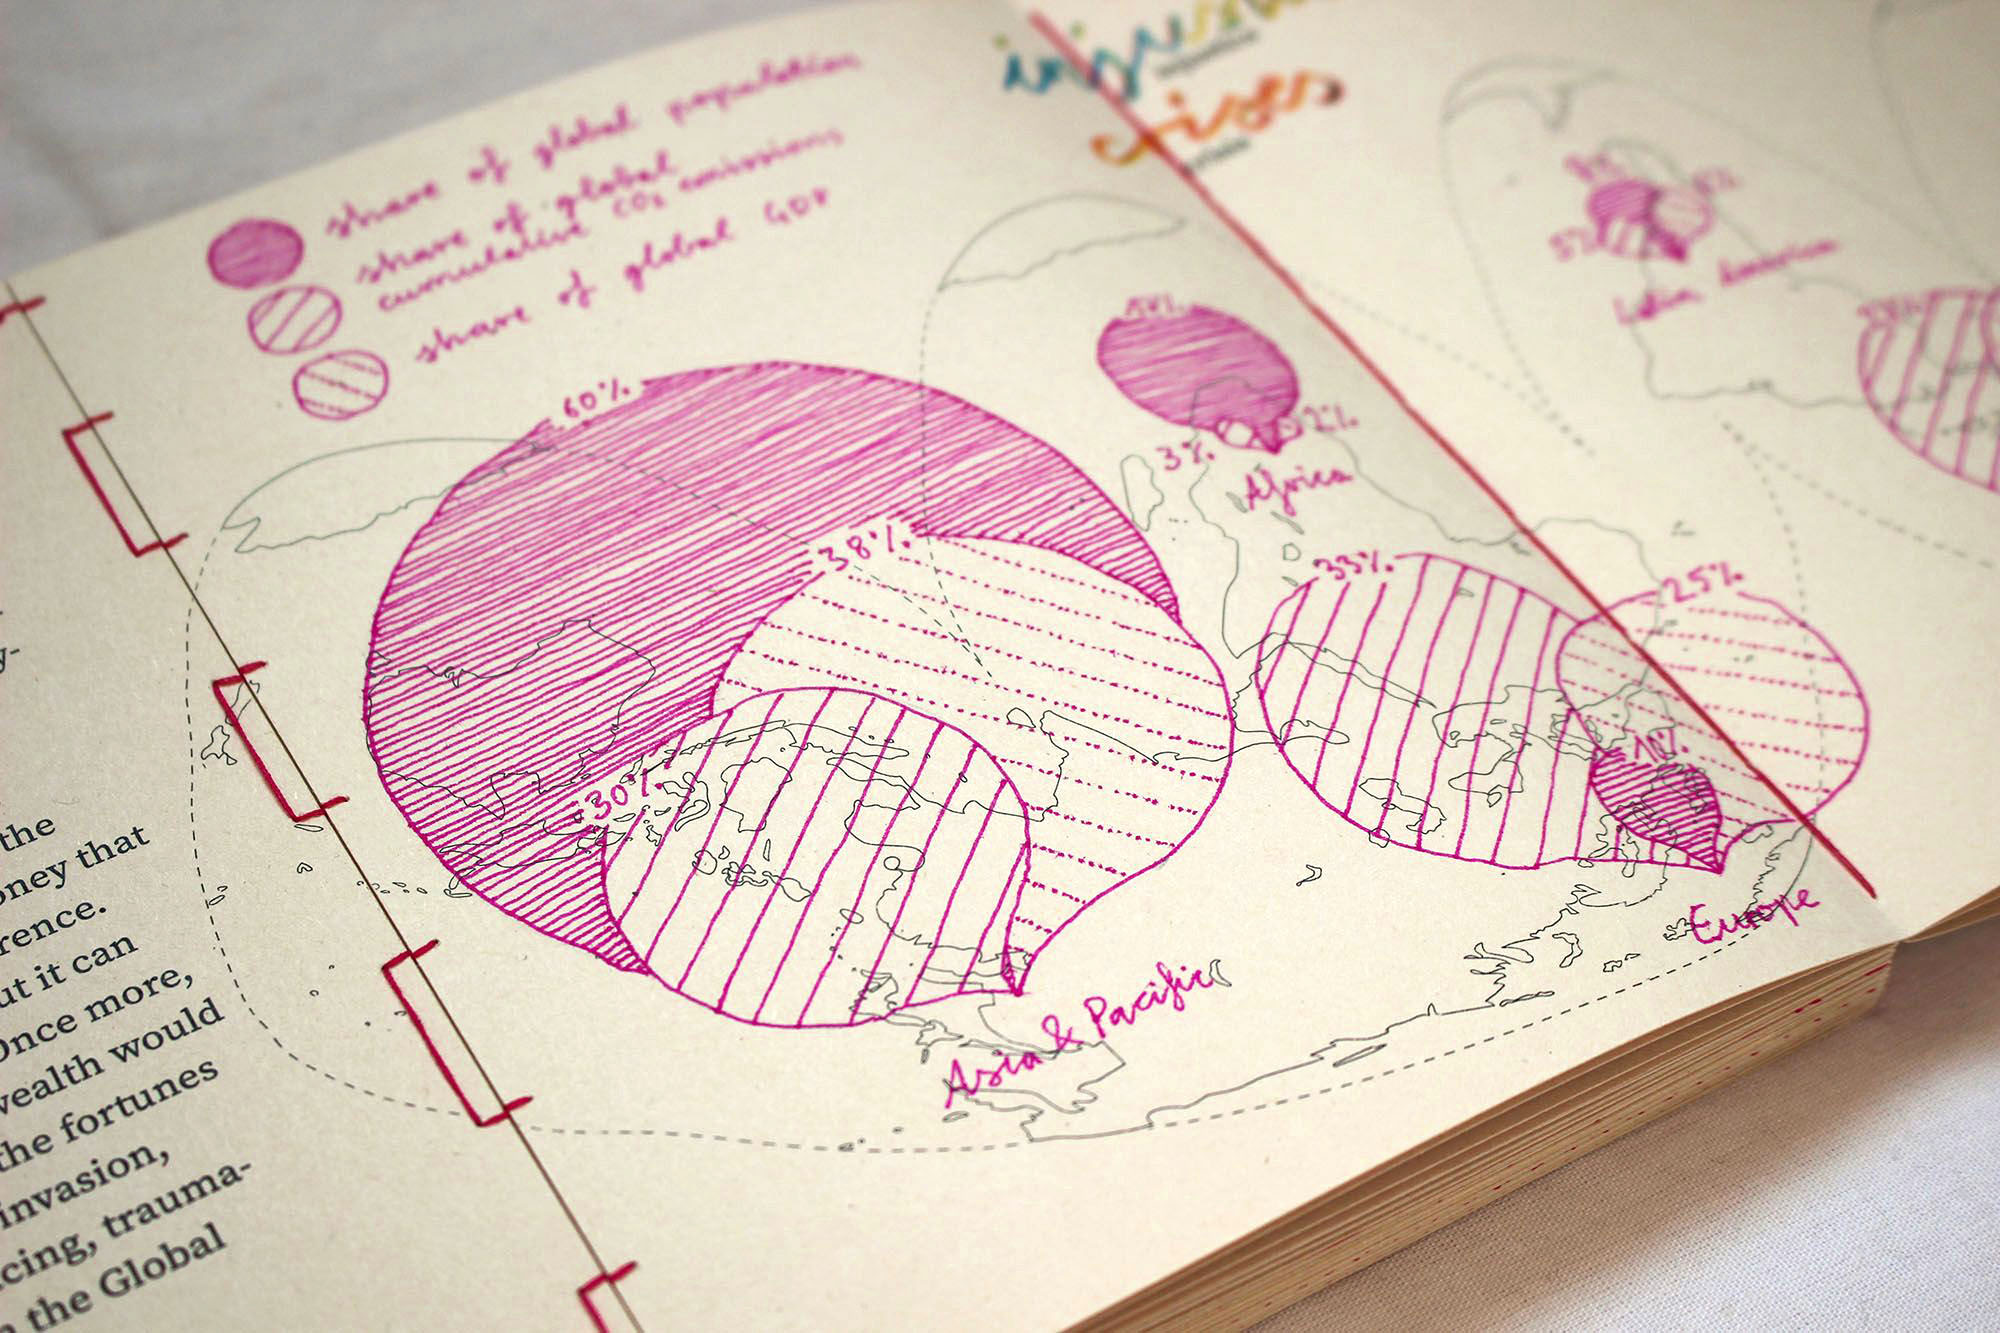 the
oney that
rence.
ut it can
Once more,
wealth would
the fortunes
invasion,
cing, trauma-
n the Global
share of global population
share of global
cumulative CO₂ emissions
share of global GDP
60%
38%
30%
Asia & Pacific
3%
2%
Africa
33%
25%
10%
Europe
8%
5%
Latin America